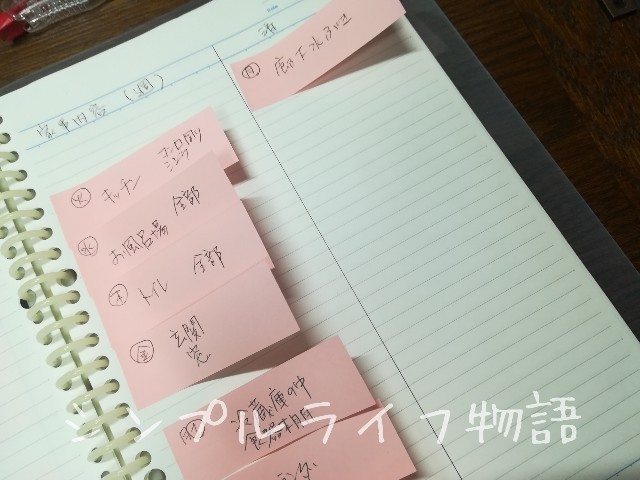 家事内容 (週)
済
㊊ 廊下水ぶき
㊋ キッチン コンロ周り
シンク
㊌ お風呂場 全部
㊍ トイレ 全部
㊎ 玄関
窓
冷蔵庫の中
食器棚
シンプルライフ物語